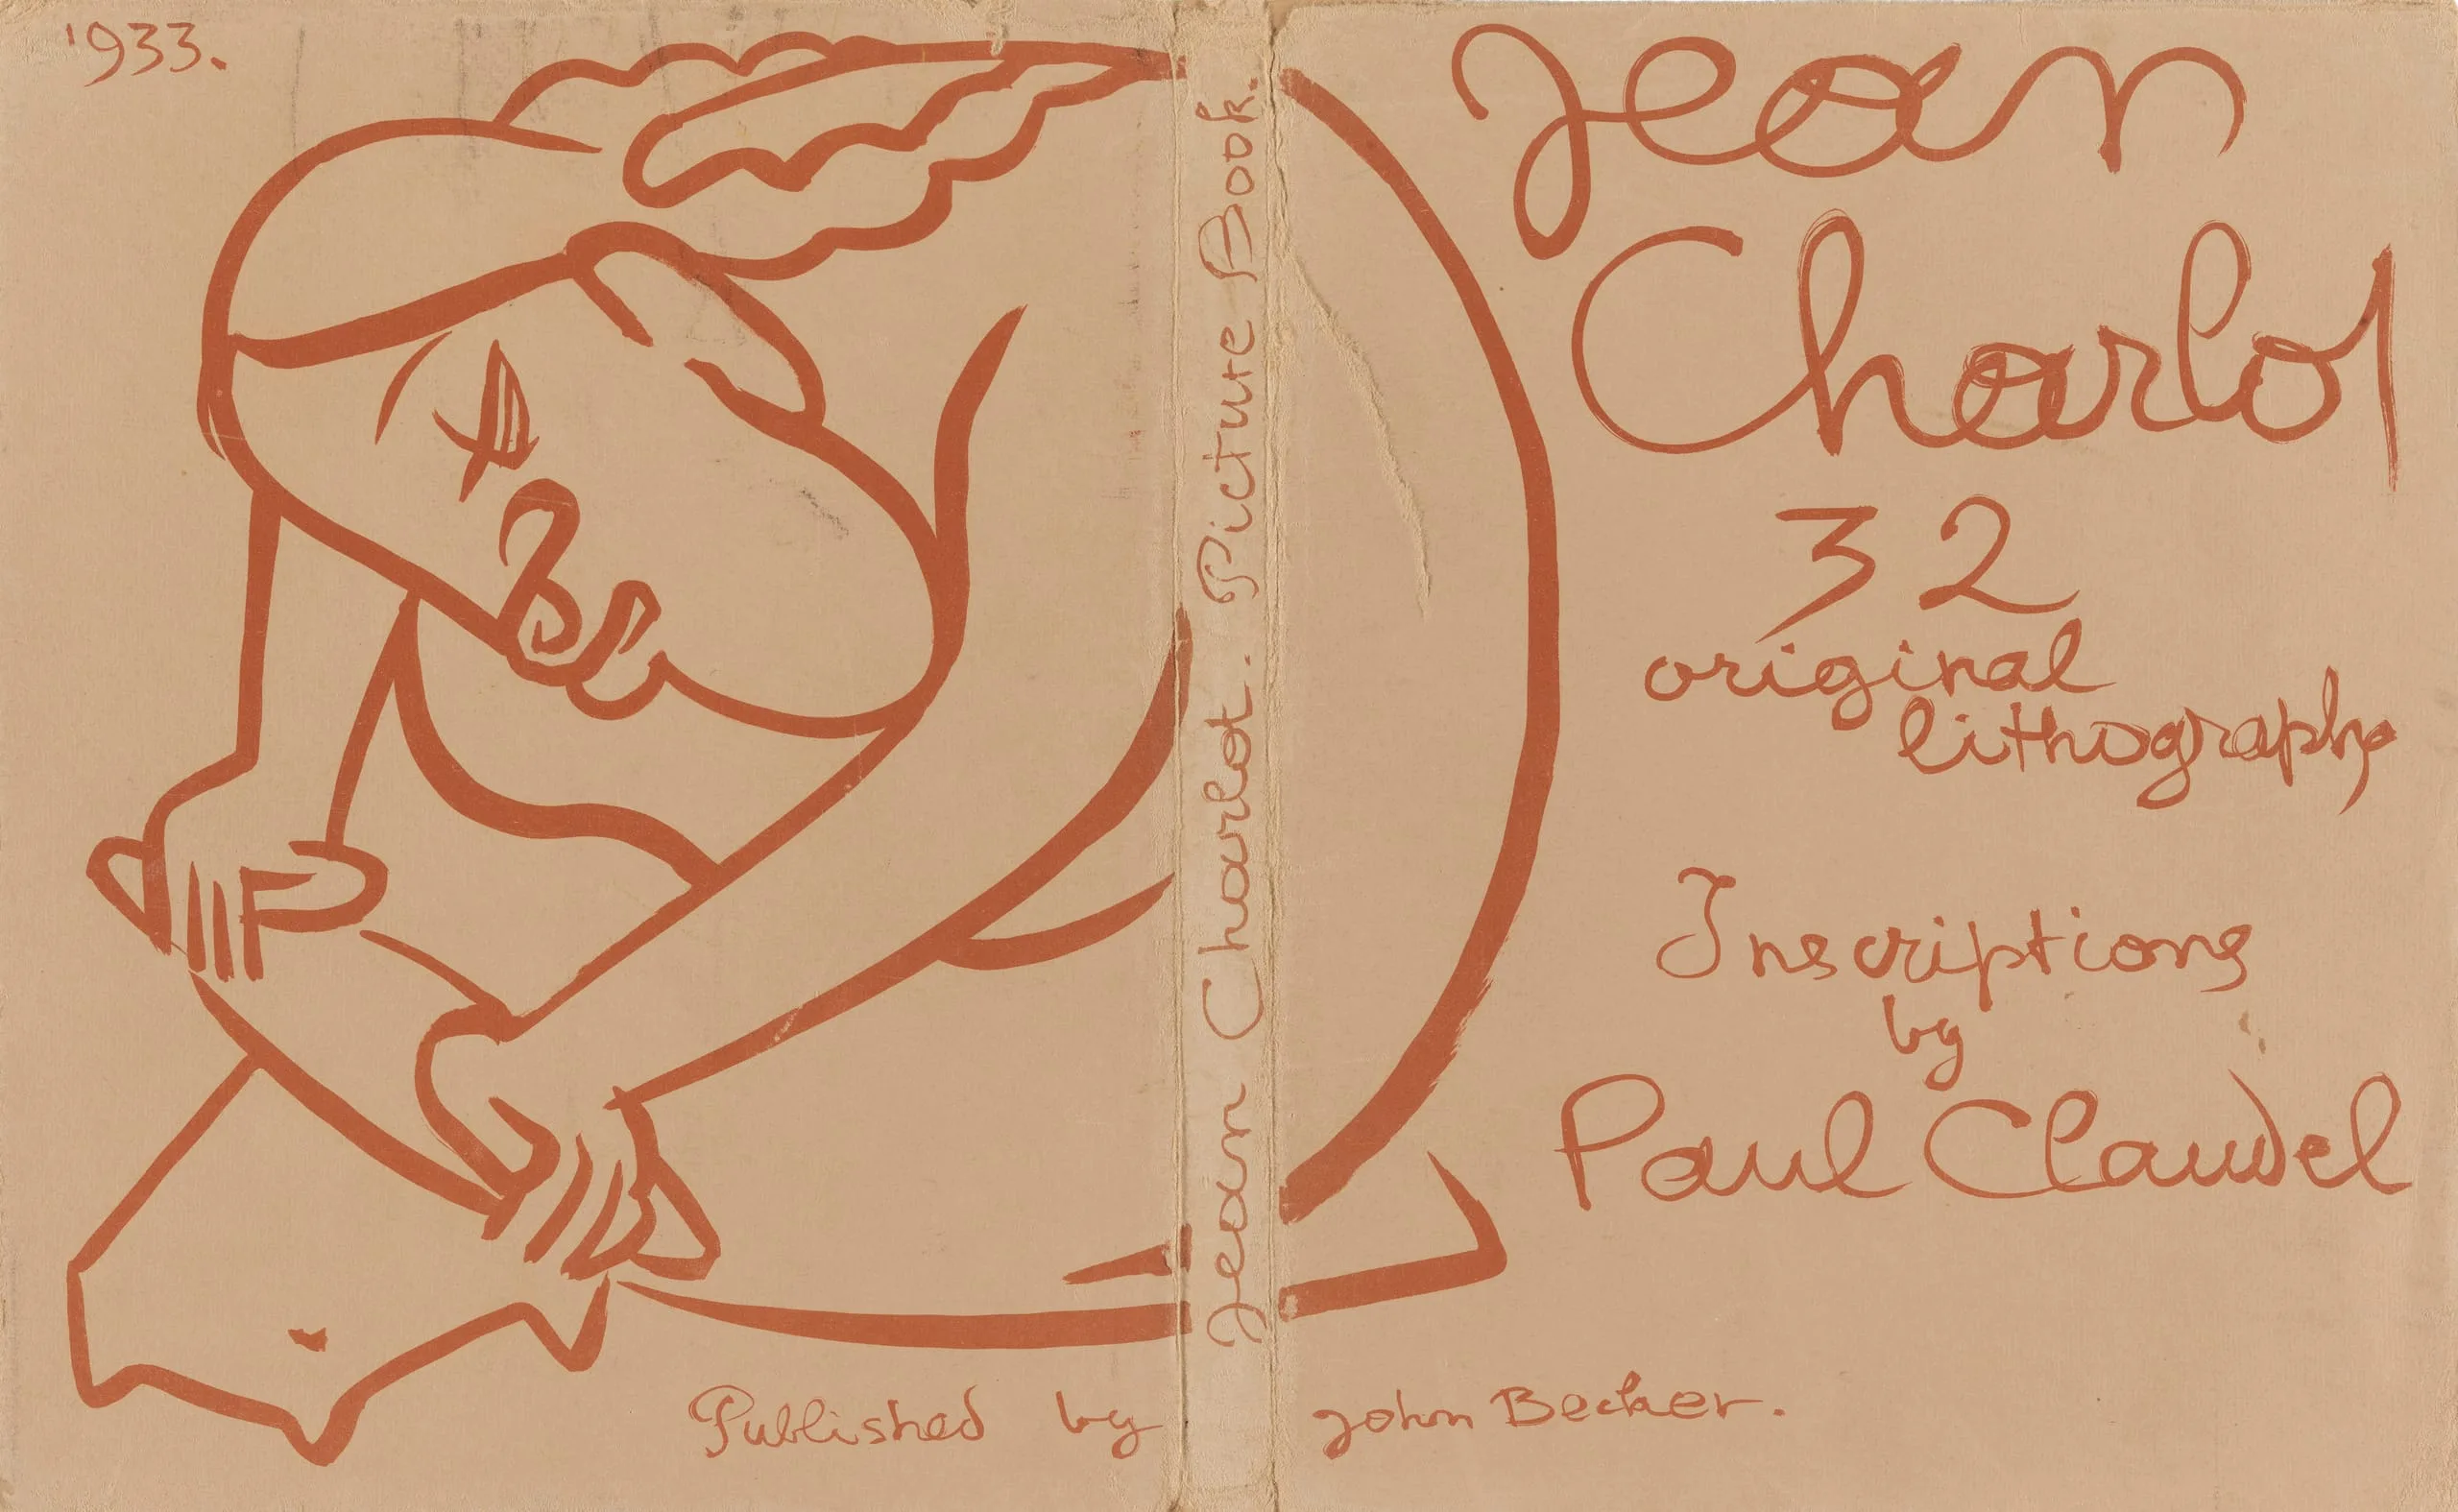 1933.
Jean
Charlot
32
original
lithographs
Inscriptions
by
Paul Claudel
Jean Charlot. Picture Book.
Published by John Becker.